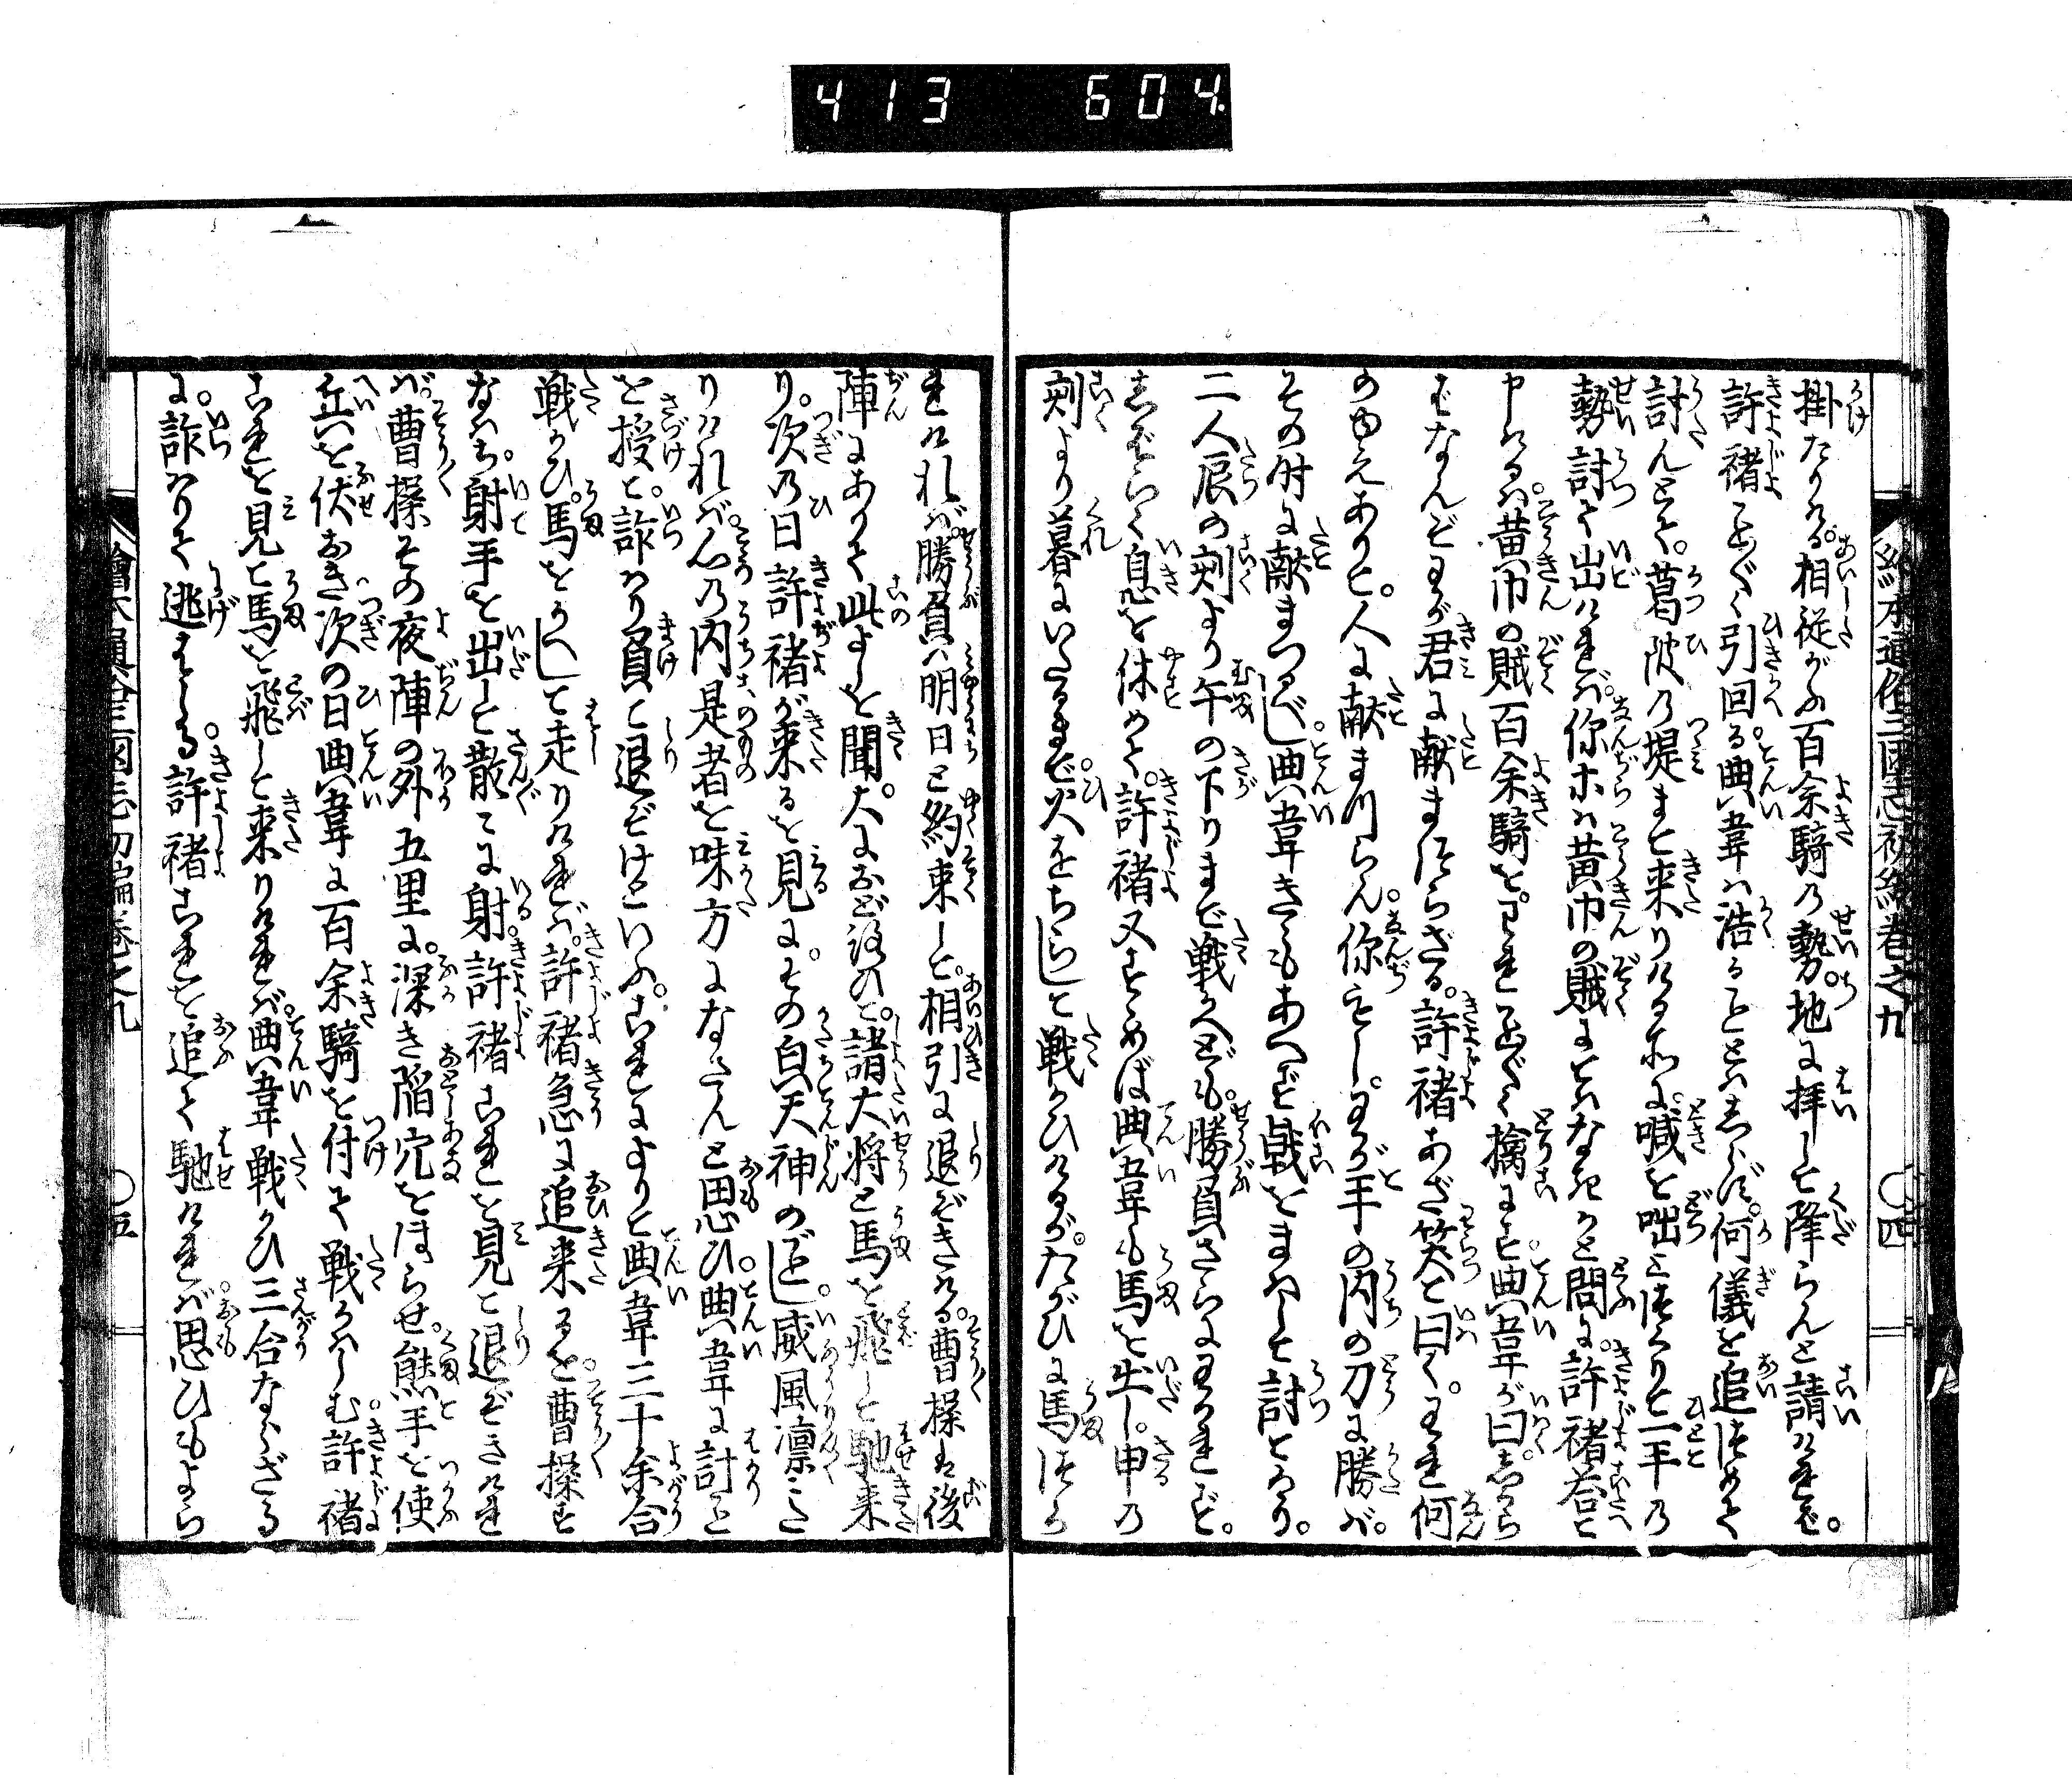 413 604
繪本通俗三國志初編卷之九 〇四
掛たりける。相従がふ百余騎の勢。地に拝して降らんと請ければ。
許褚ことごとく引回る。典韋は浩ることとはしらず。何儀を追つめて
討んとて。葛陂の堤まで来りける所に。喊を咄とつくりて一手の
勢討て出ければ。你等は黄巾の賊にてはなきかと問に。許褚答て
申けるは。黄巾の賊百余騎を。われことごとく擒にす。典韋が曰。しから
ばなんぞわが君に献まつらざる。許褚あざ笑て曰く。われ何
のゆえありて。人に献まつらん。你もし。わが手の内の刀に勝ば。
その時に献まつるべし。典韋きゝもあへず戟をまはして討てかゝり。
二人辰の刻より午の下りまで戦かへども。勝負さらにわかれず。
しばらく息を休めて。許褚又すゝめば典韋も馬を出し。申の
刻より暮にいたるまで。火をちらして戦かひけるが。たがひに馬つか
れければ。勝負は明日と約束して。相引に退ぞきける。曹操は後
陣にありて此よしを聞。大におどろひて。諸大将と馬を飛して馳来
り。次の日許褚が来るを見に。その皃天神のごとし。威風凛々た
りければ。心の内是者を味方になさんと思ひ。典韋に計こと
を授て。詐はり負て退ぞけといふ。これによりて典韋三十余合
戦かひ。馬をかへして走りければ。許褚急に追来るを。曹操す
なはち。射手を出して散々に射。許褚これを見て退ぞきけれ
ば。曹操その夜陣の外五里に。深き陥穴をほらせ。熊手を使ふ
兵を伏おき。次の日典韋に百余騎を付て戦かはしむ。許褚
これを見て馬を飛して来りければ。典韋戦かひ三合ならざる
に。詐はりて逃はしる。許褚これを追て馳ければ。思ひもよら
繪本通俗三國志初編卷之九 〇五